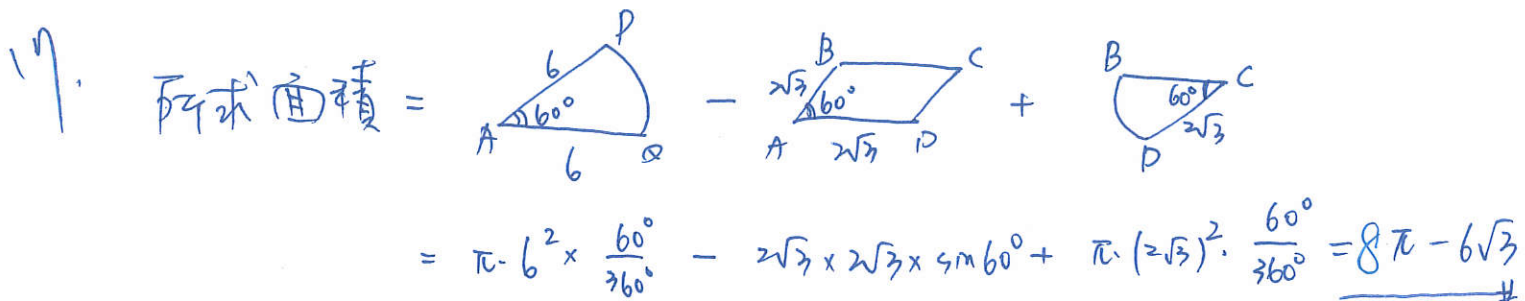 17. 所求面積 = A 6 P 60° 6 Q - A 2√3 B 60° C 2√3 D + B C 60° 2√3 D
= π·6² × 60°/360° - 2√3 × 2√3 × sin60° + π·(2√3)²· 60°/360° = 8π - 6√3